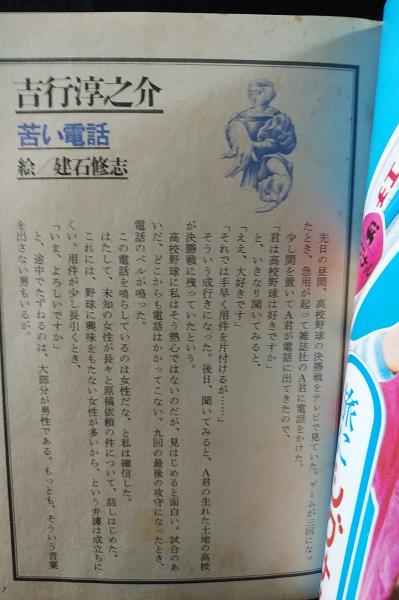 吉行淳之介
苦い電話
絵／建石修志
先日の昼間、高校野球の決勝戦をテレビで見ていた。ゲームが三回になっ
たとき、急用が起って雑誌社のA君に電話をかけた。
少し間を置いてA君が電話に出てきたので、
「君は高校野球は好きですか」
と、いきなり聞いてみると、
「ええ、大好きです」
「それでは手早く用件を片付けるが……」
そういう成行きになった。後日、聞いてみると、A君の生れた土地の高校
が決勝戦に残っていたという。
高校野球に私はそう熱心ではないのだが、見はじめると面白い。試合のあ
いだ、どこからも電話はかかってこない。九回の最後の攻守になったとき、
電話のベルが鳴った。
この電話を鳴らしているのは女性だな、と私は確信した。
はたして、未知の女性が長々と原稿依頼の件について、話しはじめた。
これには、野球に興味をもたない女性が多いから、という弁護は成立ちに
くい。用件が少し長引くとき、
「いま、よろしいですか」
と、途中でたずねるのは、大部分が男性である。もっとも、そういう言葉
を出さない男もいるが。
7
旅に